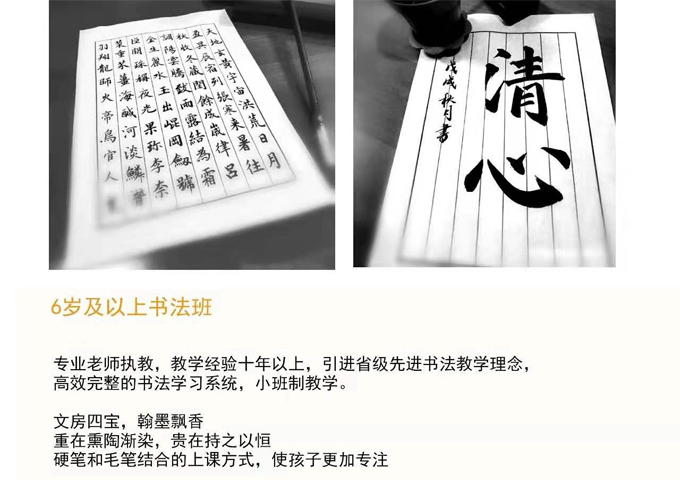 天地玄黃宇宙洪荒日月
盈昃辰宿列張寒来暑往
秋收冬藏閏餘成歲律呂
調陽雲騰致雨露結為霜
金生麗水玉出崐岡劔號
巨闕珠稱夜光果珍李奈
菜重芥薑海鹹河淡鱗
羽翔龍師火帝鳥官人
清心
戊戌秋月書
6岁及以上书法班
专业老师执教，教学经验十年以上，引进省级先进书法教学理念，
高效完整的书法学习系统，小班制教学。
文房四宝，翰墨飘香
重在熏陶渐染，贵在持之以恒
硬笔和毛笔结合的上课方式，使孩子更加专注